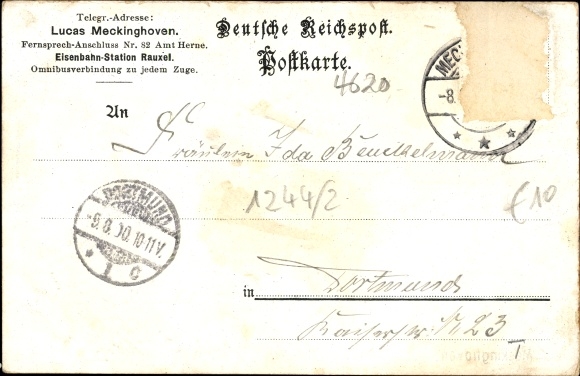 Telegr.-Adresse:
Lucas Meckinghoven.
Fernsprech-Anschluss Nr. 82 Amt Herne.
Eisenbahn-Station Rauxel.
Omnibusverbindung zu jedem Zuge.
Deutsche Reichspost.
Postkarte.
4620
MEC
-8.
An
Fräulein Ida Beuckelmann
1244/2
€10
DORTMUND
-9.8.00.10-11V.
* 1 c
in Dortmund
Kaiserstr. N 23